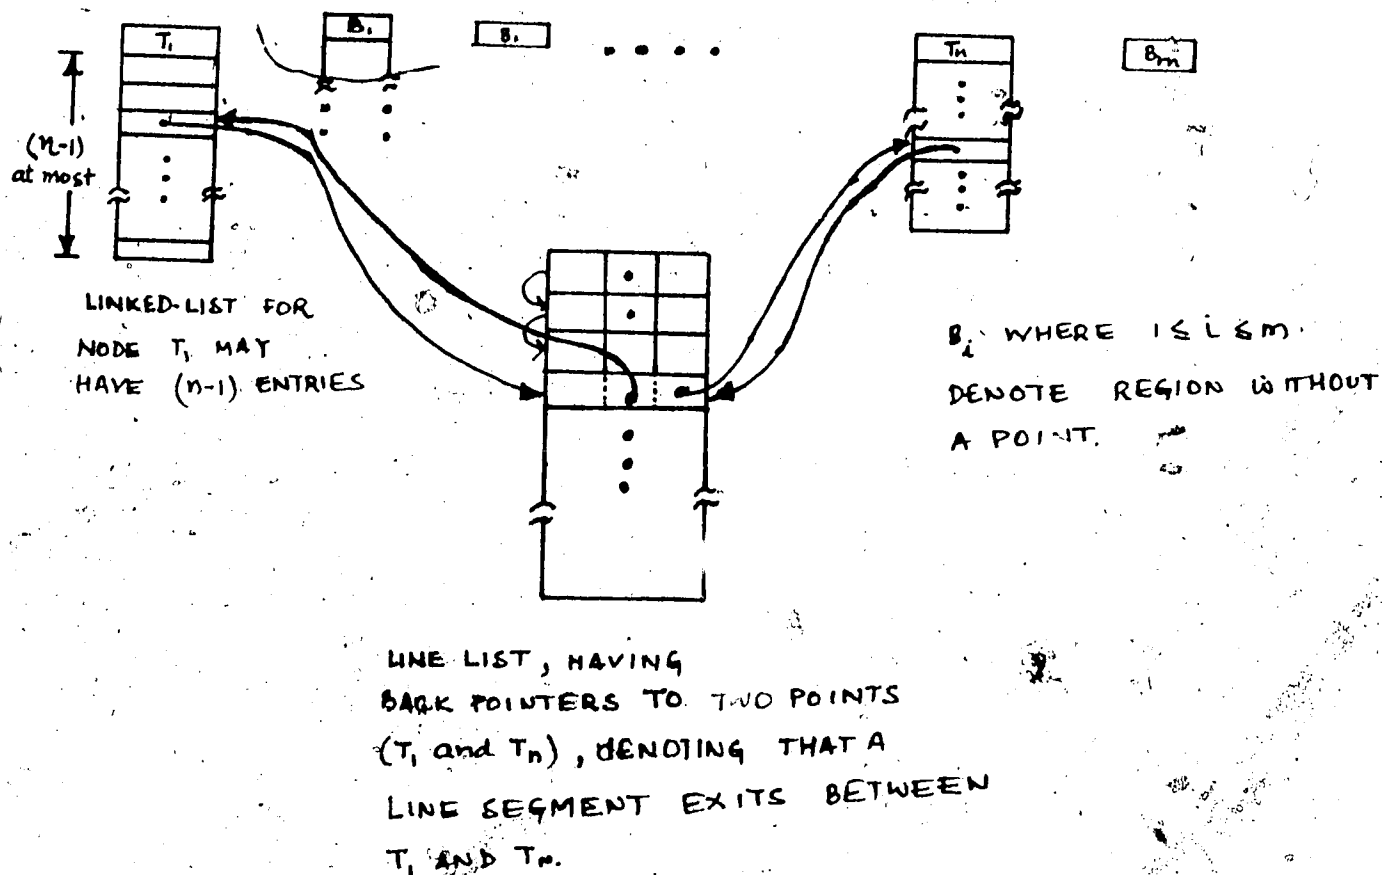 T₁
B₁
B₁
Tn
Bm
(n-1)
at most
LINKED-LIST FOR
NODE T₁ MAY
HAVE (n-1) ENTRIES
Bᵢ WHERE 1 ≤ i ≤ m.
DENOTE REGION WITHOUT
A POINT.
LINE LIST, HAVING
BACK POINTERS TO TWO POINTS
(T₁ and Tn), DENOTING THAT A
LINE SEGMENT EXITS BETWEEN
T₁ AND Tn.